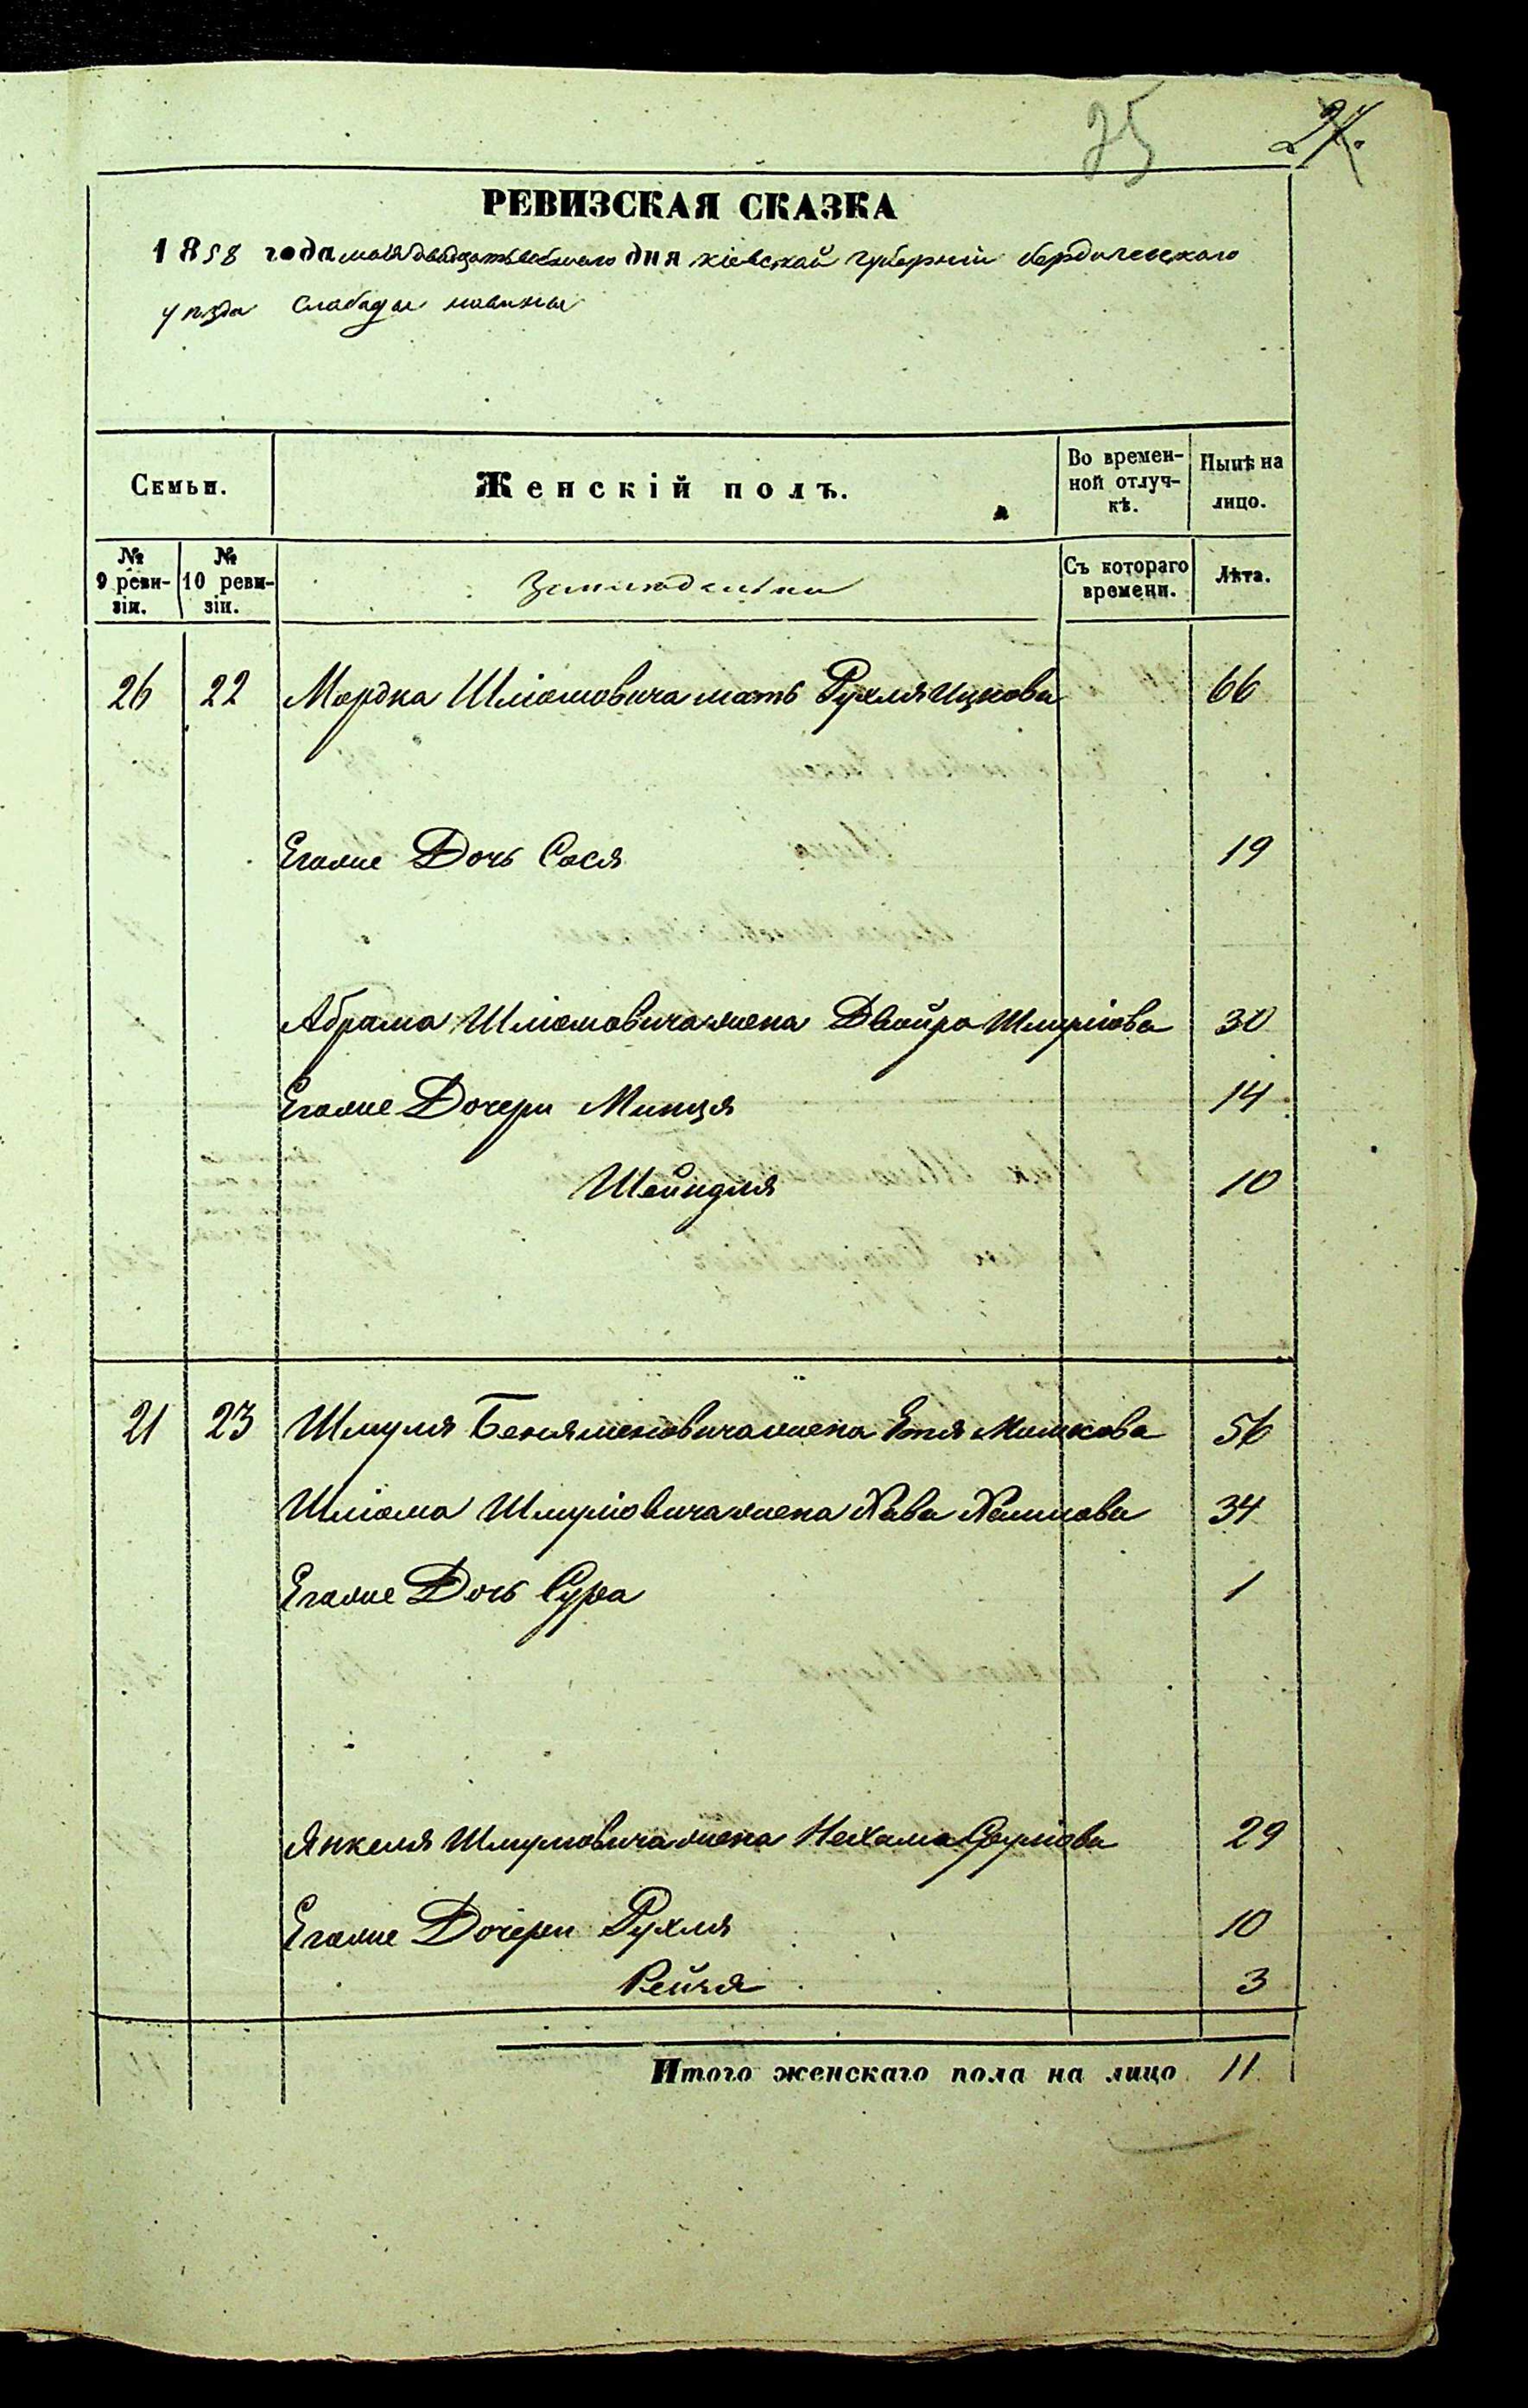 25 24.
РЕВИЗСКАЯ СКАЗКА
1858 года мая двадцать дня кіевской губерніи бердичевскаго
уѣзда Слабады
Семьи. Женскій полъ. Во времен- Нынѣ на
ной отлуч- лицо.
кѣ.
№ № Съ котораго Лѣта.
9 реви- 10 реви- времени.
зіи. зіи.
26 22 Мордка Шліомовича мать Рухля Ицкова 66
Егоже Дочь Сося 19
Абрама Шліомовича жена Двойра Шмуліова 30
Егоже Дочери Минця 14
Шейндля 10
21 23 Шмуля Беняменовича жена Етя Мошкова 56
Шліома Шмуліовича жена Хава Хаимова 34
Егоже Дочь Сура 1
Янкеля Шмуліовича жена Нехама Сруліова 29
Егоже Дочери Рухля 10
Рейзя 3
Итого женскаго пола на лицо 11